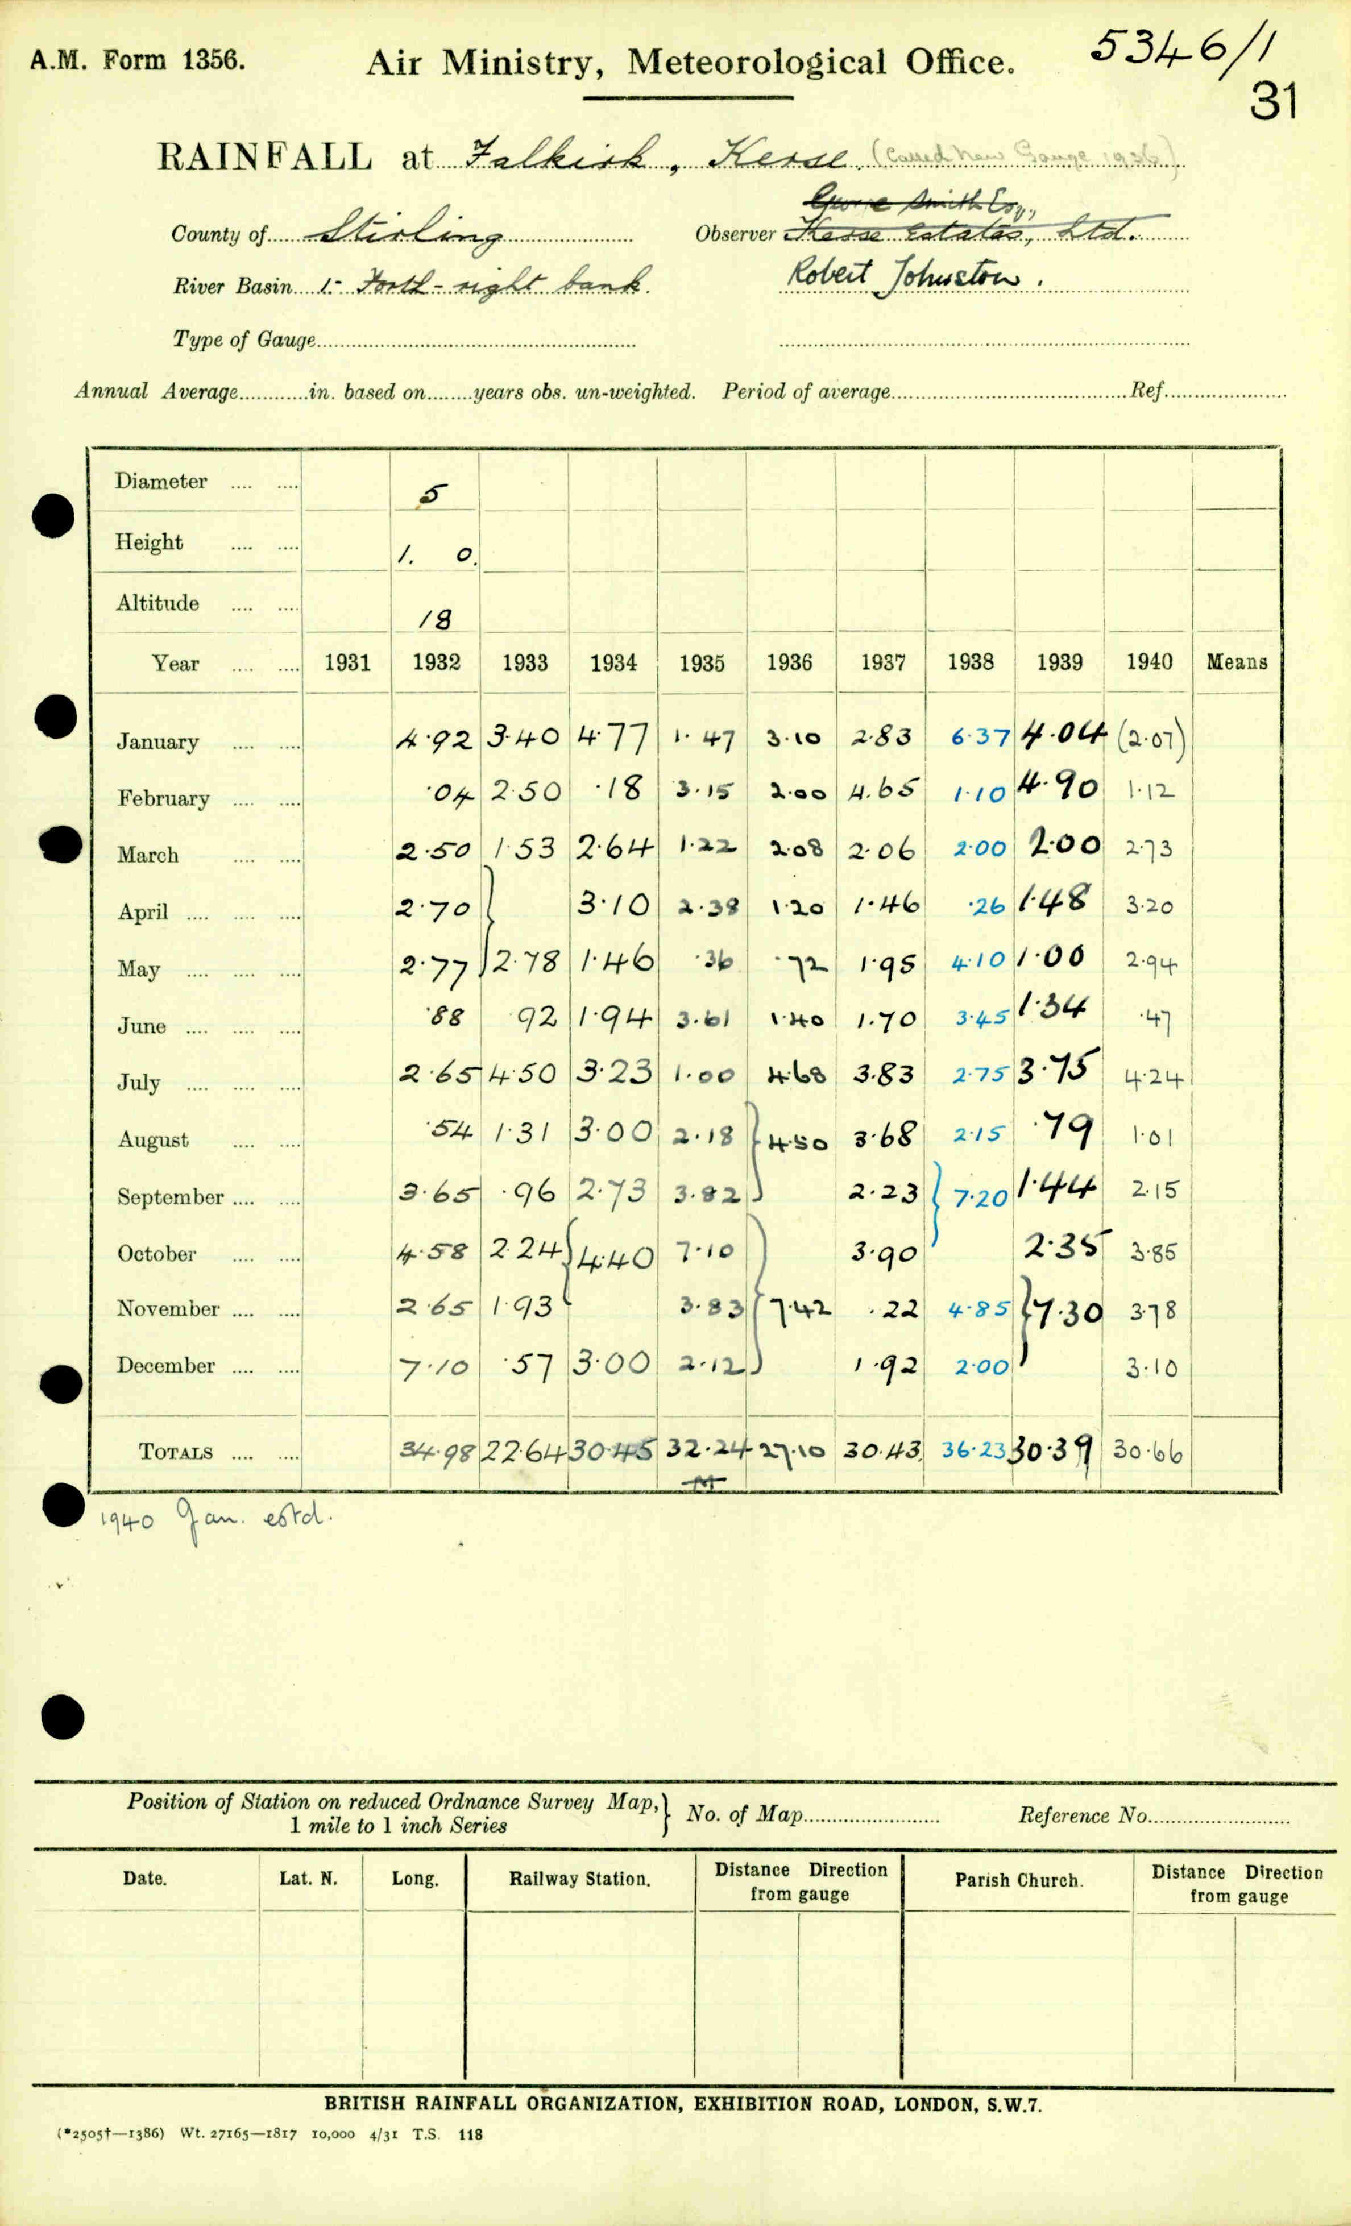 A.M. Form 1356. Air Ministry, Meteorological Office. 5346/1
31
RAINFALL at Falkirk, Kerse. (Called New Gauge 1936)
George Smith Esq,
County of Stirling Observer Kerse Estates, Ltd.
River Basin 1- Forth - right bank. Robert Johnston.
Type of Gauge
Annual Average in. based on years obs. un-weighted. Period of average Ref.
Diameter 5
Height 1. 0.
Altitude 18
Year 1931 1932 1933 1934 1935 1936 1937 1938 1939 1940 Means
January 4.92 3.40 4.77 1.47 3.10 2.83 6.37 4.04 (2.07)
February .04 2.50 .18 3.15 2.00 4.65 1.10 4.90 1.12
March 2.50 1.53 2.64 1.22 2.08 2.06 2.00 2.00 2.73
April 2.70 } 3.10 2.38 1.20 1.46 .26 1.48 3.20
May 2.77 2.78 1.46 .36 .72 1.95 4.10 1.00 2.94
June .88 .92 1.94 3.61 1.40 1.70 3.45 1.34 .47
July 2.65 4.50 3.23 1.00 4.68 3.83 2.75 3.75 4.24
August .54 1.31 3.00 2.18 } 4.50 3.68 2.15 .79 1.01
September 3.65 .96 2.73 3.82 2.23 } 7.20 1.44 2.15
October 4.58 2.24 { 4.40 7.10 3.90 2.35 3.85
November 2.65 1.93 3.83 } 7.42 .22 4.85 } 7.30 3.78
December 7.10 .57 3.00 2.12 1.92 2.00 3.10
TOTALS 34.98 22.64 30.45 32.24 27.10 30.43 36.23 30.39 30.66
M
1940 Jan. estd.
Position of Station on reduced Ordnance Survey Map, } No. of Map Reference No.
1 mile to 1 inch Series
Date. Lat. N. Long. Railway Station. Distance Direction from gauge Parish Church. Distance Direction from gauge
BRITISH RAINFALL ORGANIZATION, EXHIBITION ROAD, LONDON, S.W.7.
(*2505†—1386) Wt. 27165—1817 10,000 4/31 T.S. 118